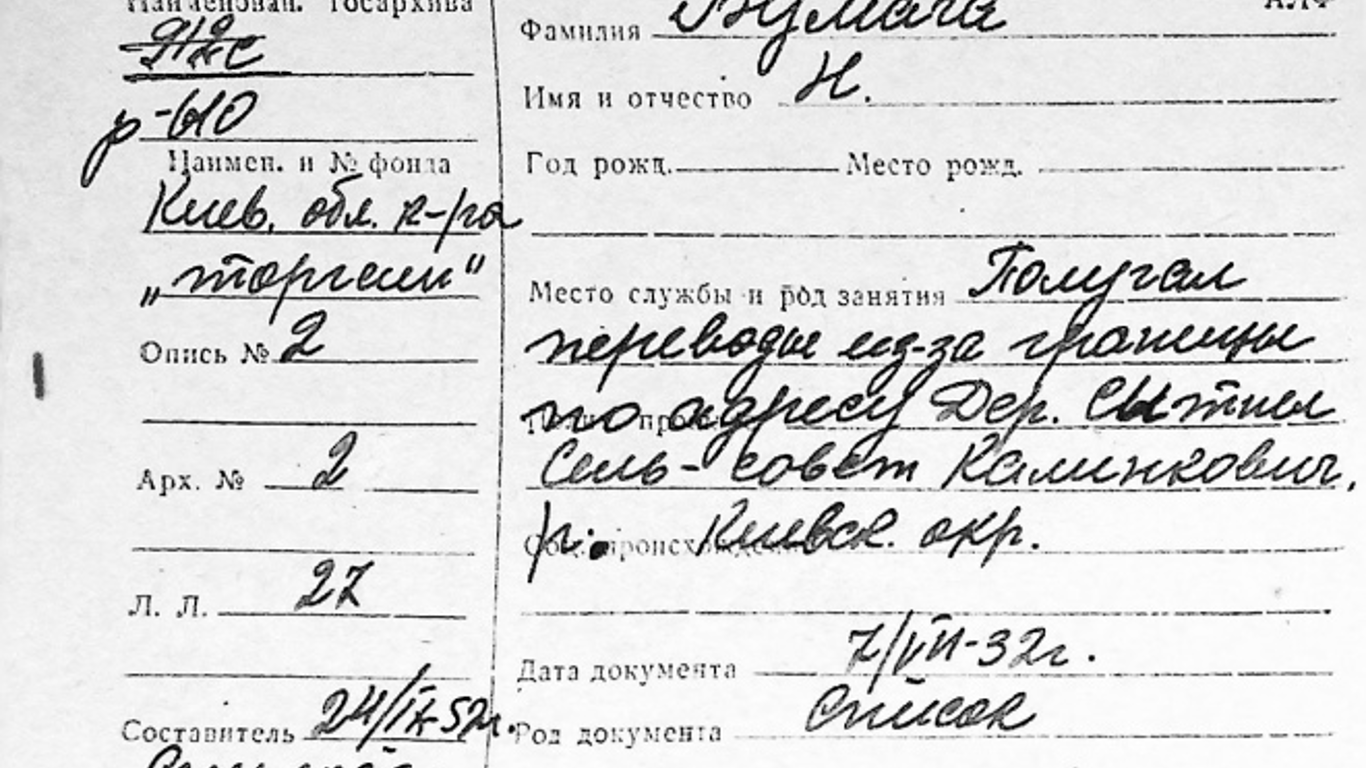 Наименован. госархива
912с
р-610
Наимен. и № фонда
Киев. обл. к-ра
„торгсин"
Опись № 2
Арх. № 2
Л. Л. 27
Составитель 24/IX-52г.
Фамилия
Имя и отчество Н.
Год рожд. Место рожд.
Место службы и род занятия Получал
переводы из-за границы
по адресу Дер. Сытня
Сель-совет Калинкович.
р. Киевск. окр.
Дата документа 7/VIII-32г.
Род документа Список